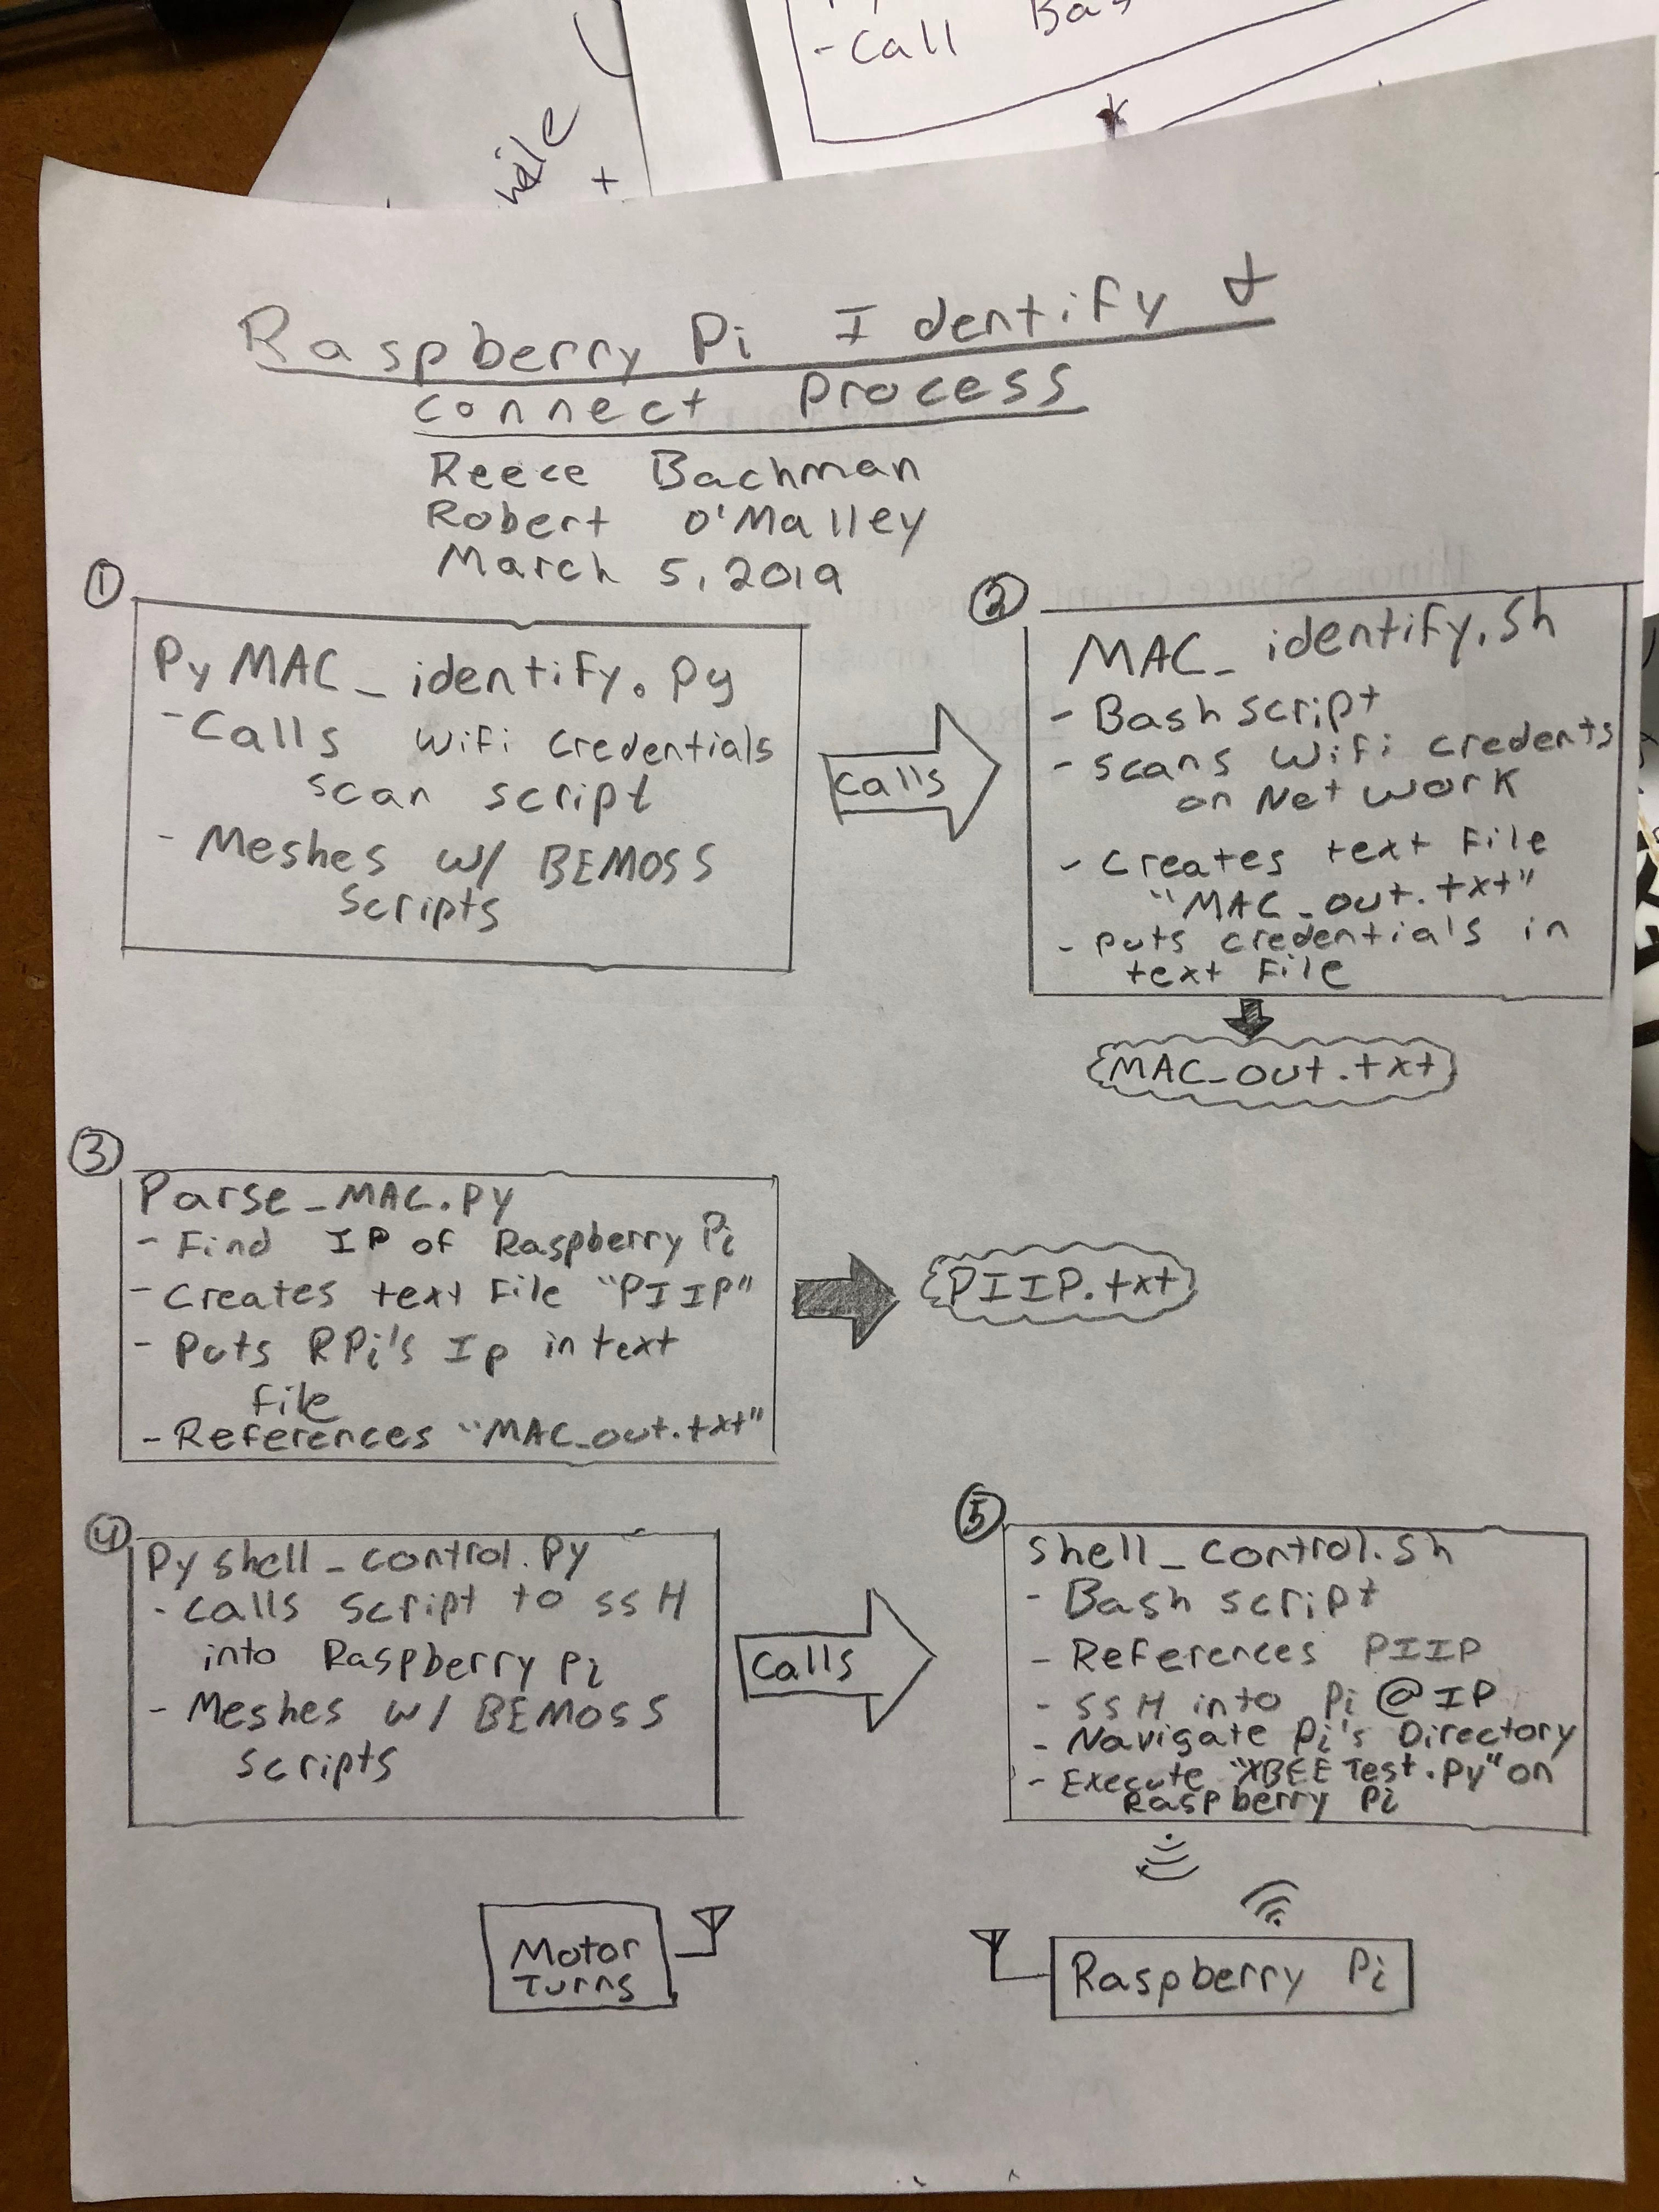 - Call Bas
Raspberry Pi Identify &
connect Process
Reece Bachman
Robert O'Malley
March 5, 2019
①
PyMAC_identify.py
- Calls wifi credentials
scan script
- Meshes w/ BEMOSS
scripts
calls
②
MAC_identify.sh
- Bash script
- scans wifi credents
on Network
- creates text file
"MAC_out.txt"
- puts credentials in
text file
MAC_out.txt
③
Parse_MAC.py
- Find IP of Raspberry Pi
- Creates text file "PIIP"
- Puts RPi's Ip in text
file
- References "MAC_out.txt"
PIIP.txt
④
Pyshell_control.py
- calls script to ssH
into Raspberry Pi
- Meshes w/ BEMOSS
scripts
calls
⑤
shell_control.sh
- Bash script
- References PIIP
- SSH into Pi @ IP
- Navigate Pi's Directory
- Execute "XBEETest.Py" on
Raspberry Pi
Motor
Turns
Raspberry Pi